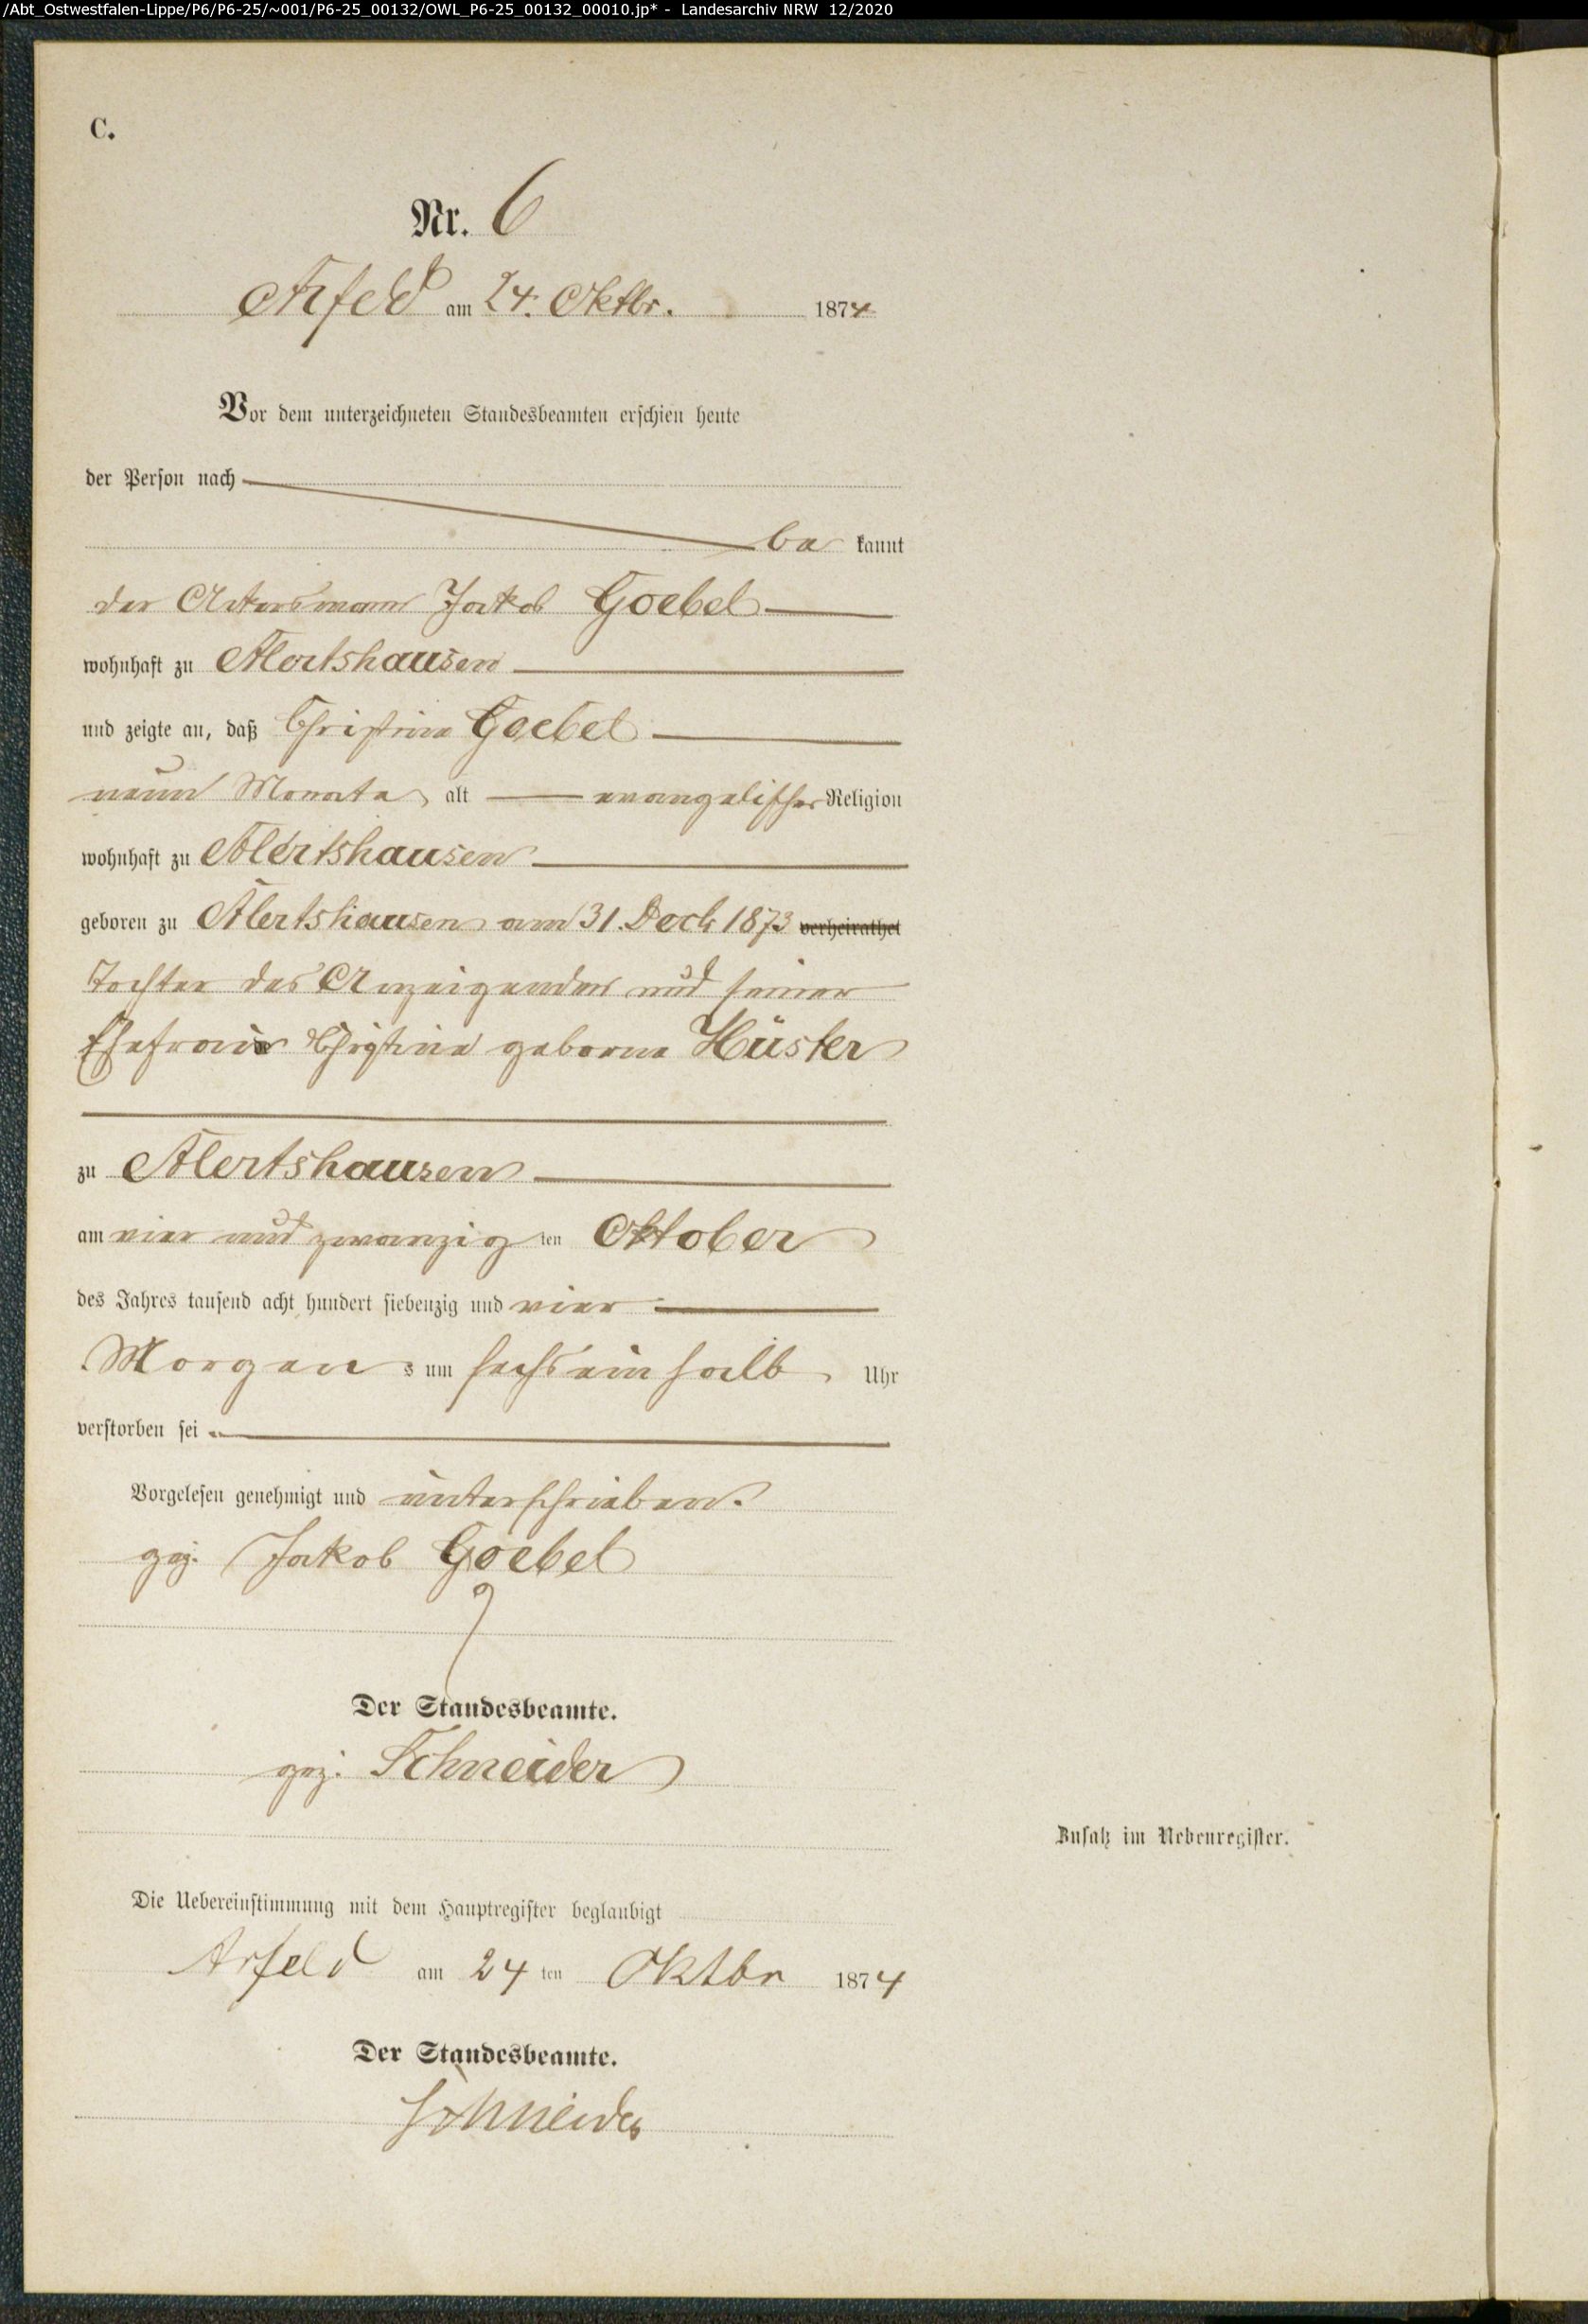 /Abt_Ostwestfalen-Lippe/P6/P6-25/~001/P6-25_00132/OWL_P6-25_00132_00010.jp* - Landesarchiv NRW 12/2020
C.
Nr. 6
Arfeld am 24. Oktbr. 1874
Vor dem unterzeichneten Standesbeamten erschien heute
der Person nach
be kannt
der Ackersmann Jakob Goebel
wohnhaft zu Alertshausen
und zeigte an, daß Christina Goebel
neun Monate alt evangelischer Religion
wohnhaft zu Alertshausen
geboren zu Alertshausen am 31. Decb 1873 verheirathet
Tochter des Anzeigenden und seiner
Ehefrau Christina geborne Hüster
zu Alertshausen
am vier und zwanzig ten Oktober
des Jahres tausend acht hundert siebenzig und vier
Morgen s um sechs ein halb Uhr
verstorben sei
Vorgelesen genehmigt und unterschrieben.
gez. Jakob Goebel
Der Standesbeamte.
gez. Schneider
Zusatz im Nebenregister.
Die Uebereinstimmung mit dem Hauptregister beglaubigt
Arfeld am 24 ten Oktbr 1874
Der Standesbeamte.
Schneider